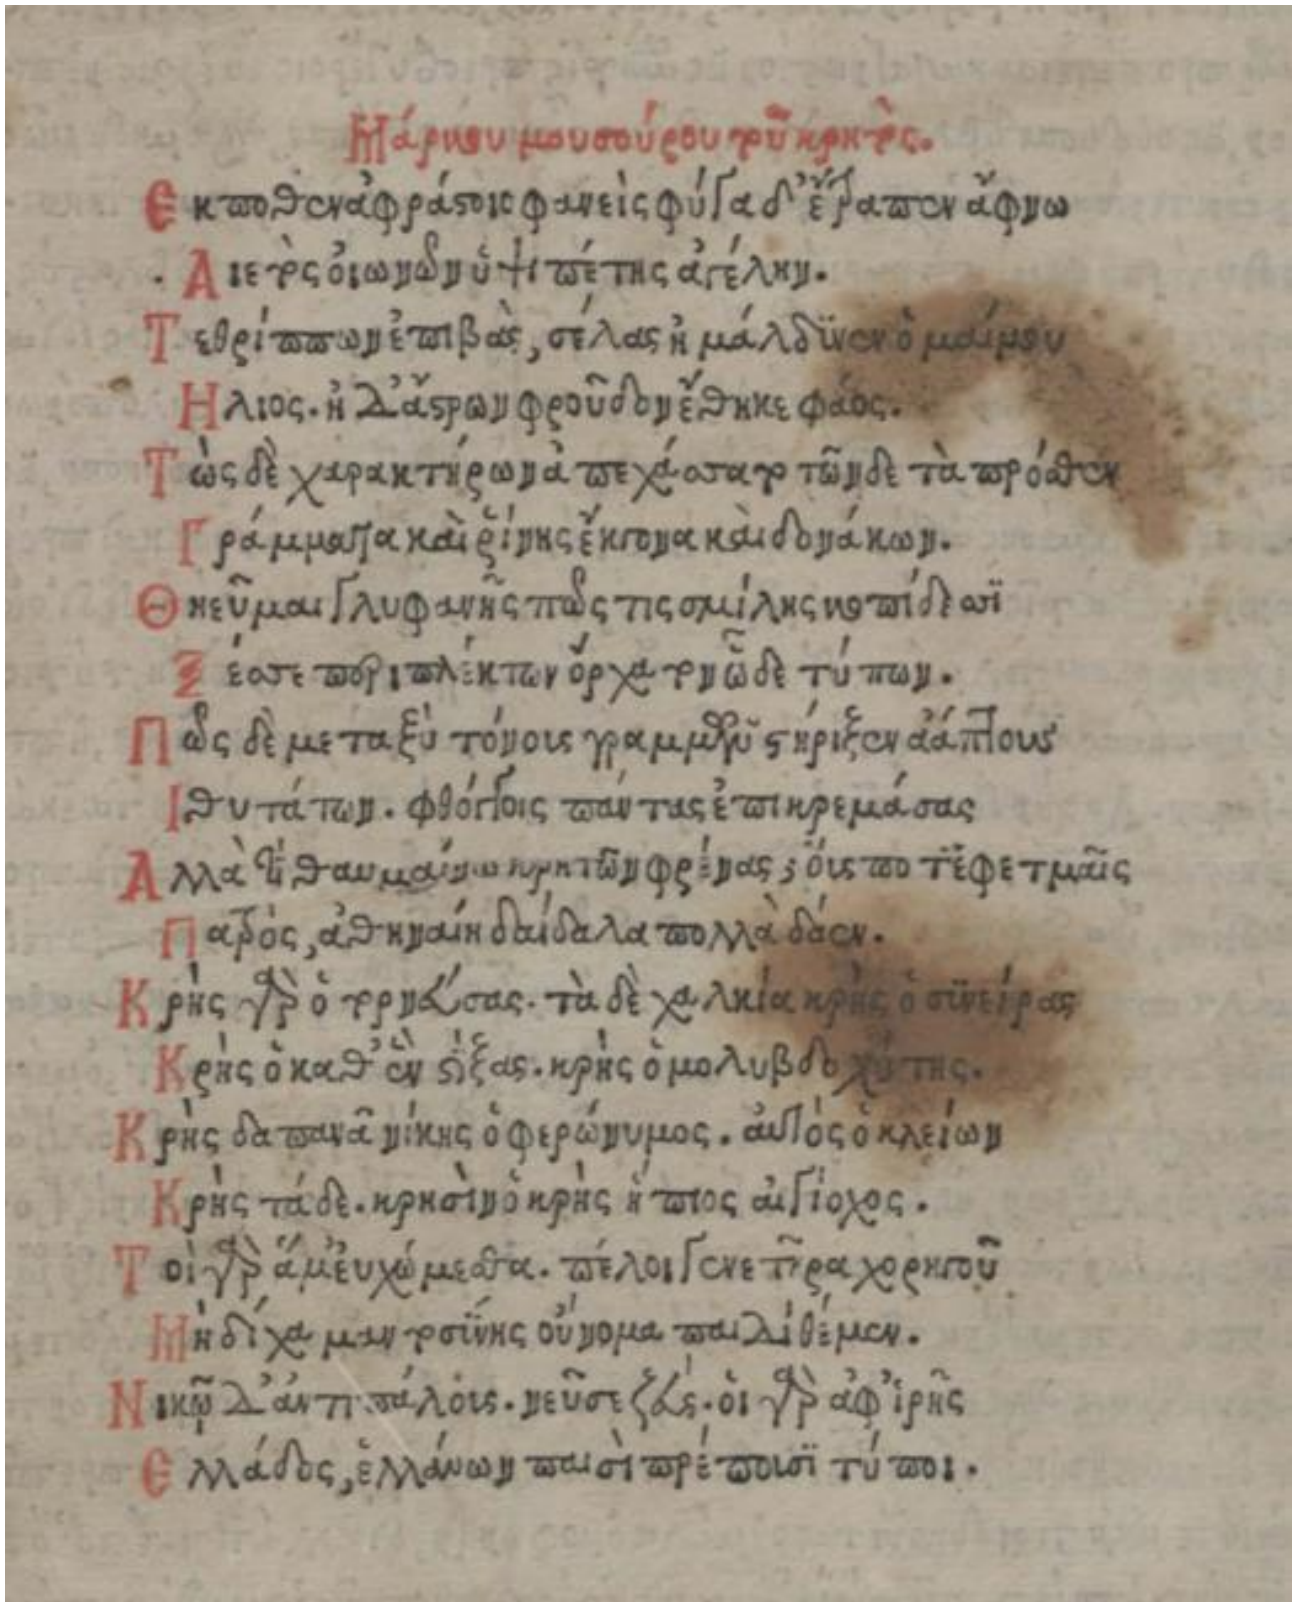 Μάρκου μουσούρου τοῦ κρητὸς.
Εκποθεν ἀφράστοις φανεὶς φύγαδ' ἔτραπεν ἄφνω
Αιετὸς ὀιωνῶν ὑψιπέτης ἀγέλην.
Τεθρίππων ἐπιβὰς, σέλας ἠμάλδυνεν ὁ μαίμου
Ηλιος. ἠδ' ἄστρων φροῦδον ἔθηκε φάος.
Τὼς δὲ χαρακτήρων ἀπεχάσσατο τῶνδε τὰ πρόσθεν
Γράμματα καὶ ῥίνης ἔκγονα καὶ δονάκων.
Θηεῦμαι γλυφανῆς πῶς τις σμίλης κοπίδεσσι
Ξέσσε περιπλέκτων ὄρχατον ὧδε τύπων.
Πῶς δὲ μεταξὺ τόνους γραμμῶν στήριξεν ἀάπτους
Ιθυτάτων. φθόγγοις πάντας ἐπικρεμάσας
Αλλὰ τί θαυμαίνω κρητῶν φρένας; ὅις ποτ' ἐφετμαῖς
Πατρὸς, ἀθηναίη δαίδαλα πολλὰ δάεν.
Κρὴς γὰρ ὁ τορνεύσας. τὰ δὲ χαλκία κρὴς ὁ συνείρας
Κρὴς ὁ καθ' ἓν στίξας. κρὴς ὁ μολυβδοχύτης.
Κρὴς δαπανᾶ νίκης ὁ φερώνυμος. ἀυτὸς ὁ κλείων
Κρὴς τάδε. κρησὶν ὁ κρὴς ἤπιος ἀιγίοχος.
Τοὶ γὰρ ἅμ' ἐυχώμεσθα. πέλοι γενετῆρα χορηγοῦ
Μὴ δίχα μαντοσύνης οὔνομα παιδὶ θέμεν.
Νικῷ δ' ἀντιπάλους. νεῦσε ζεύς. ὁι γὰρ ἀφ' ἱρῆς
Ελλάδος, ἑλλάνων παισὶ πρέπουσι τύποι.